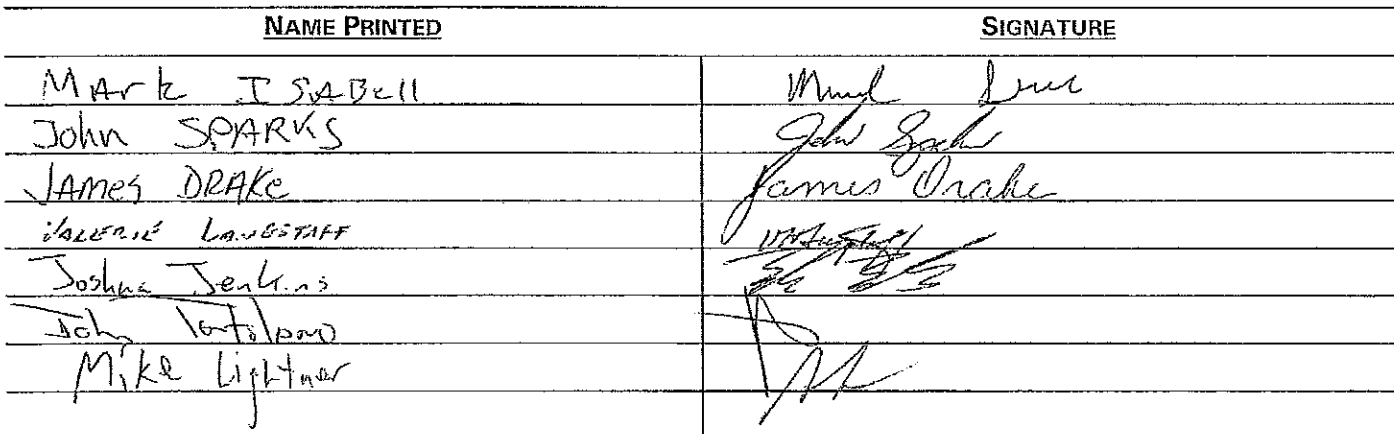 NAME PRINTED SIGNATURE
Mark ISABell
John SPARKS John Sparks
JAMES DRAKE James Drake
VALERIE LANGSTAFF
Joshua Jenkins
John
Mike Lightner